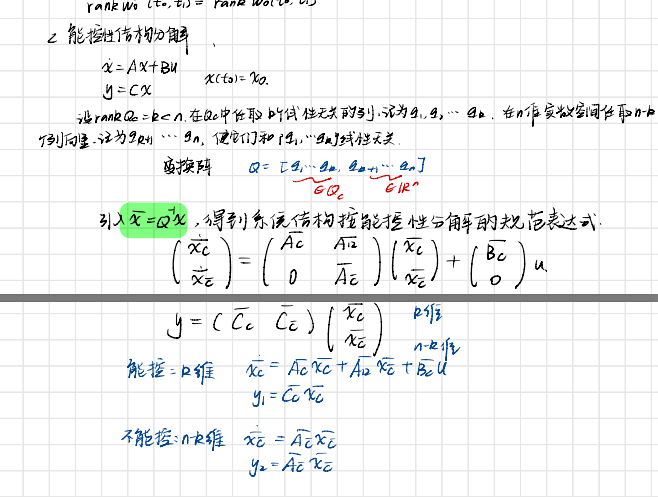 rank Wo (to,t1) = rank Wo(to,t1)
2. 能控性结构分解
ẋ = Ax+Bu
y = Cx x(to)=xo.
设rankQc=k<n.在Qc中任取k个线性无关的列,记为q1,q2 … qk. 在n维实数空间任取n-k
个列向量.记为qk+1 … qn, 使它们和{q1,…qk}线性无关.
变换阵 Q = [q1…qk, qk+1 … qn]
∈Qc ∈ℝⁿ
引入 x̄=Q⁻¹x ,得到系统结构按能控性分解的规范表达式:
(ẋ̄c / ẋ̄c̄) = (Āc Ā12 / 0 Āc̄)(x̄c / x̄c̄) + (B̄c / 0) u.
y = (C̄c C̄c̄)(x̄c / x̄c̄) k维 n-k维
能控:k维 ẋ̄c = Āc x̄c + Ā12 x̄c̄ + B̄c u
y1 = C̄c x̄c
不能控:n-k维 ẋ̄c̄ = Āc̄ x̄c̄
y2 = Āc̄ x̄c̄